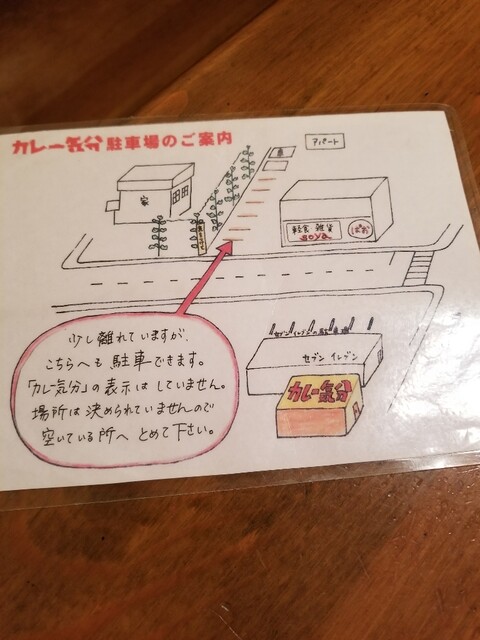 カレー気分 駐車場のご案内
アパート
車
家
軽食 雑貨
soya
ぱお
少し離れていますが、
こちらへも 駐車できます。
「カレー気分」の表示は していません。
場所は 決められていませんので
空いている所へ とめて下さい。
セブンイレブンの駐車場
セブン イレブン
カレー気分